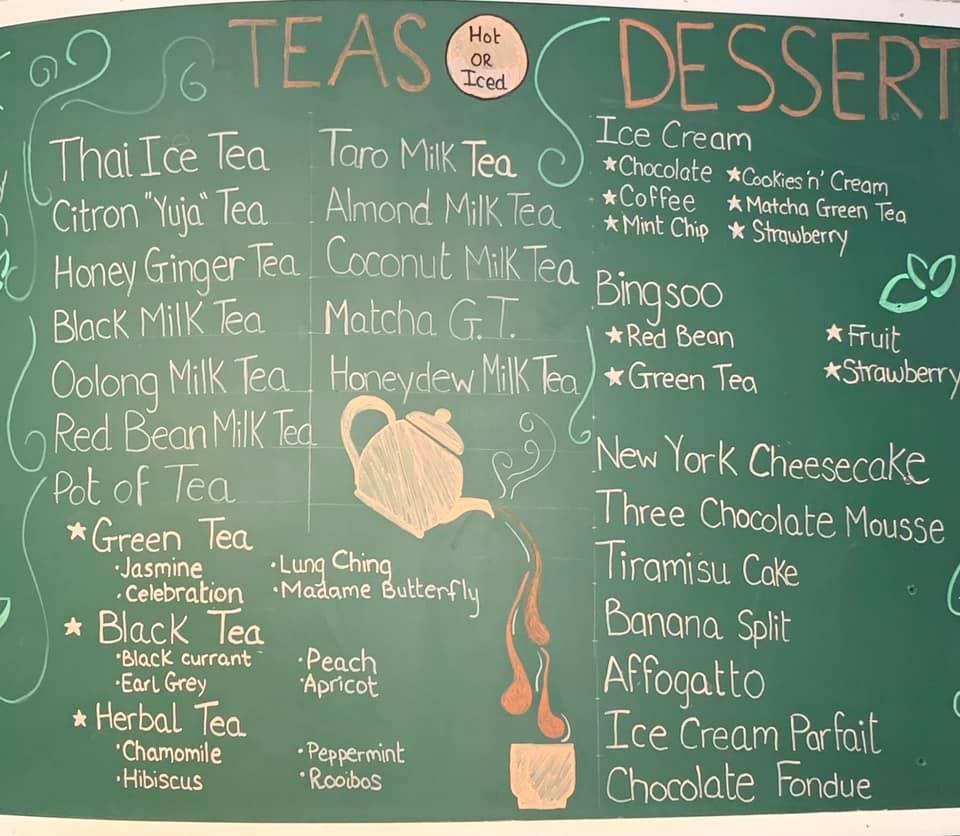 TEAS
Hot
OR
Iced
Thai Ice Tea
Citron "Yuja" Tea
Honey Ginger Tea
Black Milk Tea
Oolong Milk Tea
Red Bean Milk Tea
Pot of Tea
★Green Tea
·Jasmine
·Celebration
·Lung Ching
·Madame Butterfly
★ Black Tea
·Black currant
·Earl Grey
·Peach
·Apricot
★ Herbal Tea
·Chamomile
·Hibiscus
·Peppermint
·Rooibos
Taro Milk Tea
Almond Milk Tea
Coconut Milk Tea
Matcha G.T.
Honeydew Milk Tea
DESSERT
Ice Cream
★Chocolate
★Coffee
★Mint Chip
★Cookies 'n' Cream
★Matcha Green Tea
★ Strawberry
Bingsoo
★Red Bean
★Green Tea
★Fruit
★Strawberry
New York Cheesecake
Three Chocolate Mousse
Tiramisu Cake
Banana Split
Affogatto
Ice Cream Parfait
Chocolate Fondue